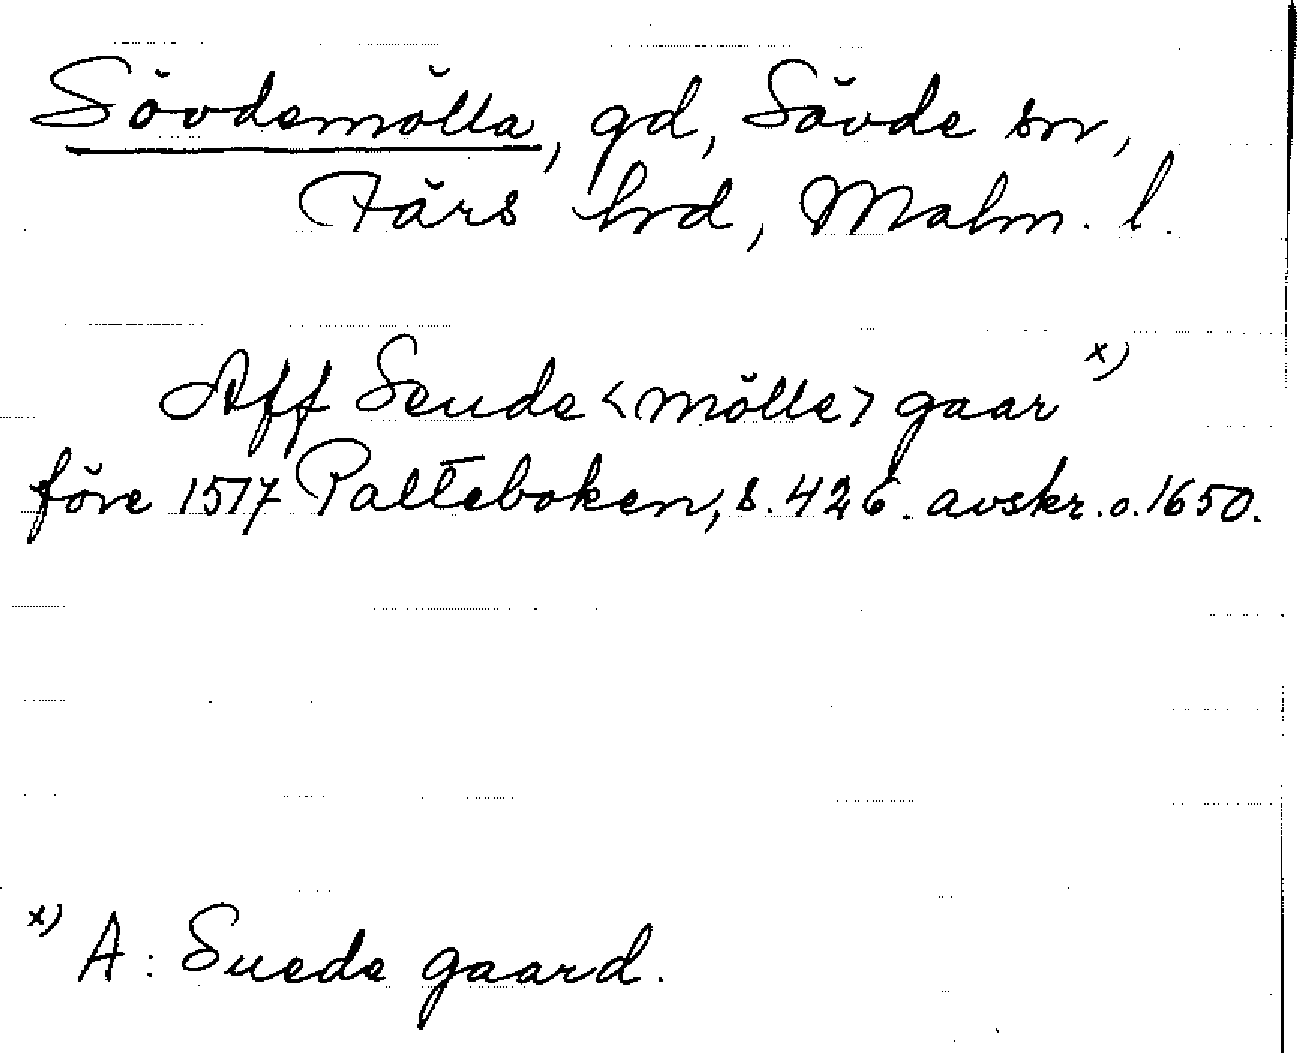 Sövdemölla, gd, Sövde sn,
Färs hrd, Malm. l.
Aff Seude <mölle> gaar x)
före 1517 Palteboken, s. 426. avskr. o. 1650.
x) A: Suede gaard.